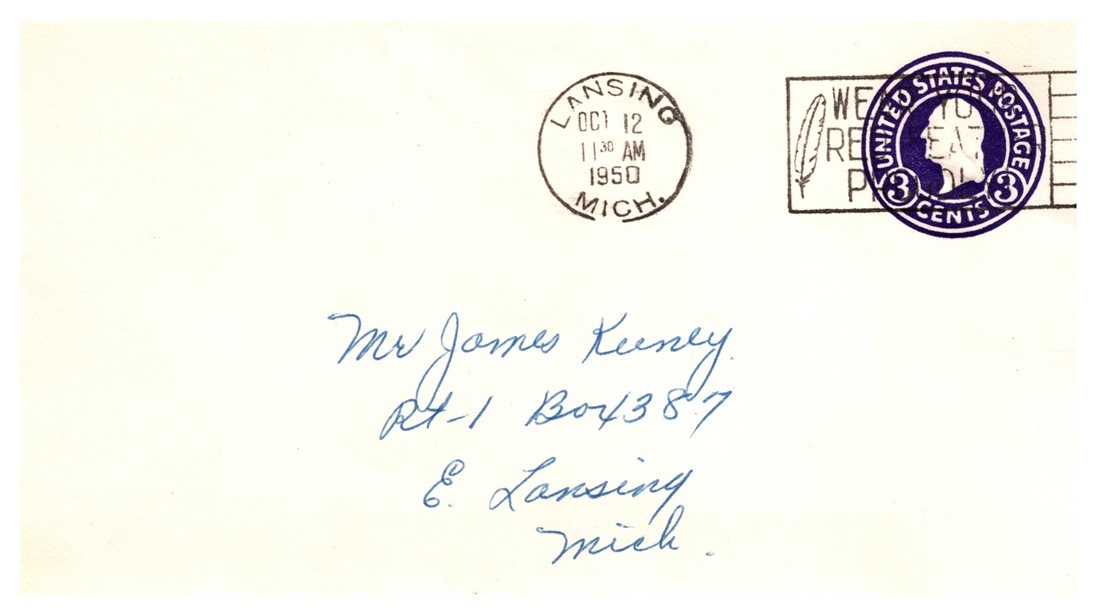 LANSING
OCT 12
11 30 AM
1950
MICH.
UNITED STATES POSTAGE
3 3
CENTS
Mr James Keeney
Rt-1 Box 387
E. Lansing
Mich.